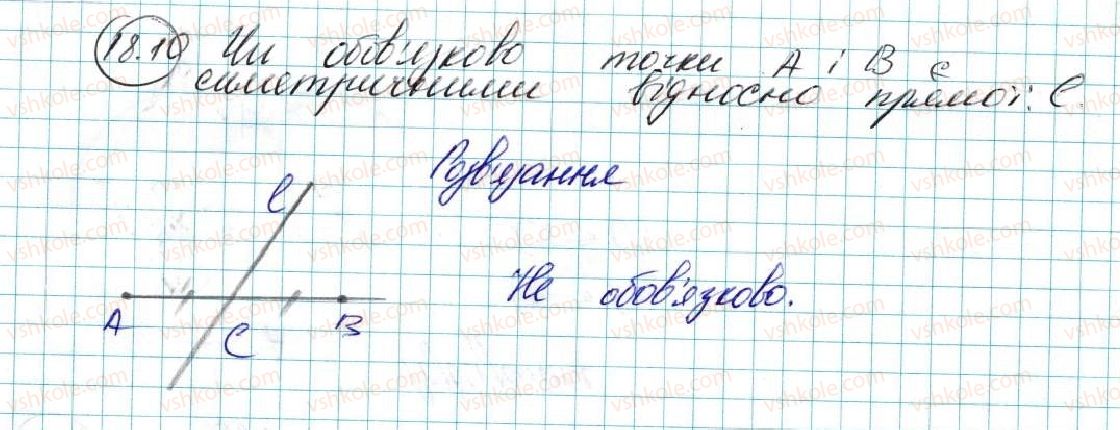 18.10 Чи обов'язково точки A і B є
симетричними відносно прямої: ℓ.
Розв'язання
ℓ
Не обов'язково.
A C B
vshkole.com